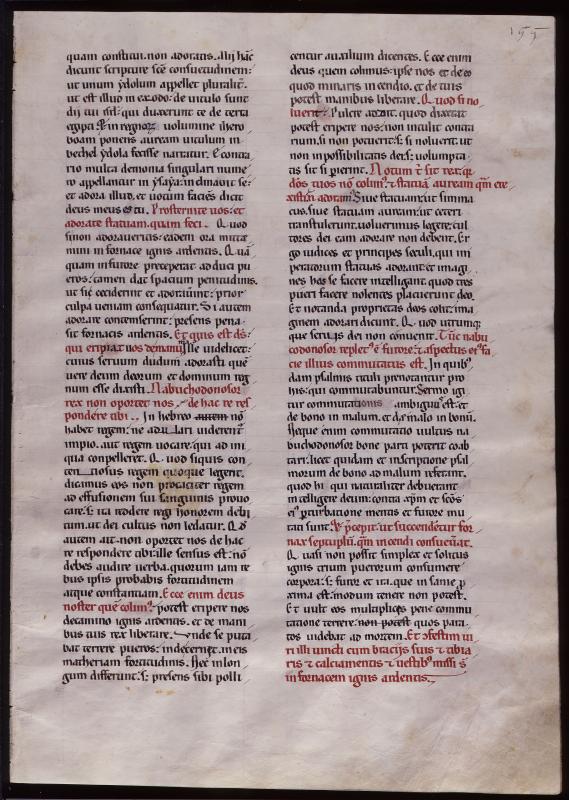 155
quam constitui. non adoratis. Alii hāc
dicunt scripture scē consuetudinem:
ut unum ydolum appellet pluralit'.
ut est illud in exodo. de uitulo. sunt
dii tui isrl. qui duxerunt te de terra
egypti. Et in regnoȝ uolumine ihero
boam ponens aureum uitulum in
bethel ydola fecisse narratur. E contra
rio multa demonia singulari nume
ro appellantur in ysaya. inclinauit se:
et adorat illud. et uotum faciēs dicit
deus meus es tu. Prosternite uos: et
adorate statuam. quam feci. Quod
si non adoraueritis: eadem ora mitte
mini in fornace ignis ardentis. Quā
quam in furore preceperat adduci pu
eros: tamen dat spacium penitudinis.
ut si ceciderint et adorauerint: prior'
culpa ueniam consequatur. Si autem
adorare contempserint: presens pena
sit fornacis ardentis. Et quis est dš:
qui eripiat uos de manu mea. Ille uidelicet:
cuius seruum dudum adorasti. quē
uere deum deorum et dominum reg
num esse dixisti. Nabuchodonosor
rex non oportet nos. de hac re res
pondere tibi. In hebreo autem nō
habet regem: ne adulari uiderent'
impio. aut regem uocare: qui ad ini
qua conpelleret. Quod si quis con
tentiosus regem quoque legerit.
dicamus eos non procaciter regem
ad effusionem sui sanguinis prouo
care: s; ita reddere regi honorem debi
tum. ut dei cultus non ledatur. Qd
autem ait. non oportet nos de hac
re respondere tibi: ille sensus est: nō
debes audire uerba. quorum iam re
bus ipsis probabis fortitudinem
atque constantiam. Ecce enim deus
noster quē colim': potest eripere nos
de camino ignis ardentis. et de mani
bus tuis rex liberare. Unde se puta
bat terrere pueros: inde cernet. meis
matheriam fortitudinis. Nec in lon
gum differunt. s; presens sibi polli
centur auxilium dicentes. Ecce enim
deus quem colimus: ipse nos et de eo
quod minaris incendio. et de tuis
potest manibus liberare. Quod si no
luerit. Pulcre addit. quod dixerat
potest eripere nos: non inculit contra
rium. si non potuerit: s; si noluerit. ut
non inpossibilitatis dei: s; uolunta
tis sit si perierint. Notum t' sit rex. q;
dōs tuos nō colim'. et statuā auream qm̄ ere
xisti nō adoram'. Siue statuam: ut simma
cus. siue statuam auream: ut ceteri
transtulerunt: uoluerimus legere: cul
tores dei eam adorare non debent. Er
go iudices et principes seculi. qui im
peratorum statuas adorant et imagi
nes: hoc se facere intelligant. quod tres
pueri facere nolentes placuerunt deo.
Et notanda proprietas. deos coli: ima
ginem adorari dicunt. Quod utrumq;
que seruis dei non conuenit. Tūc nabu
codonosor replet' ē furore: et aspectus ei' fa
cie illius commutatus est. In quib'
dam psalmis tituli prenotantur pro
his: qui commutabuntur. Sermo igi
tur commutationis ambiguu' est: et
de bono in malum. et de malo in bonū.
Neque enim commutatio uultus na
buchodonosor bone parti poterit coab
tari. licet quidam et inscriptione psal
morum de bono ad malum referant.
quod hi qui naturaliter debuerant
intelligere deum: contra xpm̄ et scōs
ei' perturbatione mentis et furore mu
tati sunt. Et p̄cepit. ut succenderet' for
nax septuplū. qm̄ incendi consueuerat.
Quasi non possit simplex et solitus
ignis trium puerorum consumere
corpora: s; furor et ira. que insanie p
xima est: modum tenere non potest.
Et uult eos multiplicis pene commi
natione terrere. non potest quos para
tos uidebat ad mortem. Et ɔfestim ui
ri illi uincti cum bracijs suis et tibia
ris et calciamentis et uestib' missi sš
in fornacem ignis ardentis.